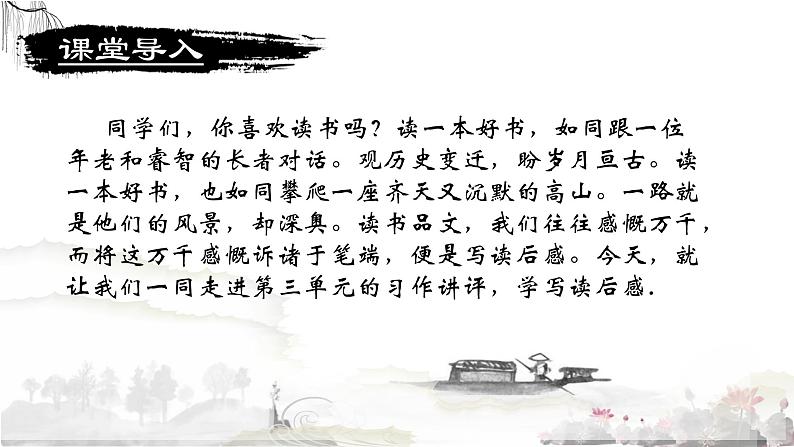 课堂导入
同学们，你喜欢读书吗？读一本好书，如同跟一位
年老和睿智的长者对话。观历史变迁，盼岁月亘古。读
一本好书，也如同攀爬一座齐天又沉默的高山。一路就
是他们的风景，却深奥。读书品文，我们往往感慨万千，
而将这万千感慨诉诸于笔端，便是写读后感。今天，就
让我们一同走进第三单元的习作讲评，学写读后感.